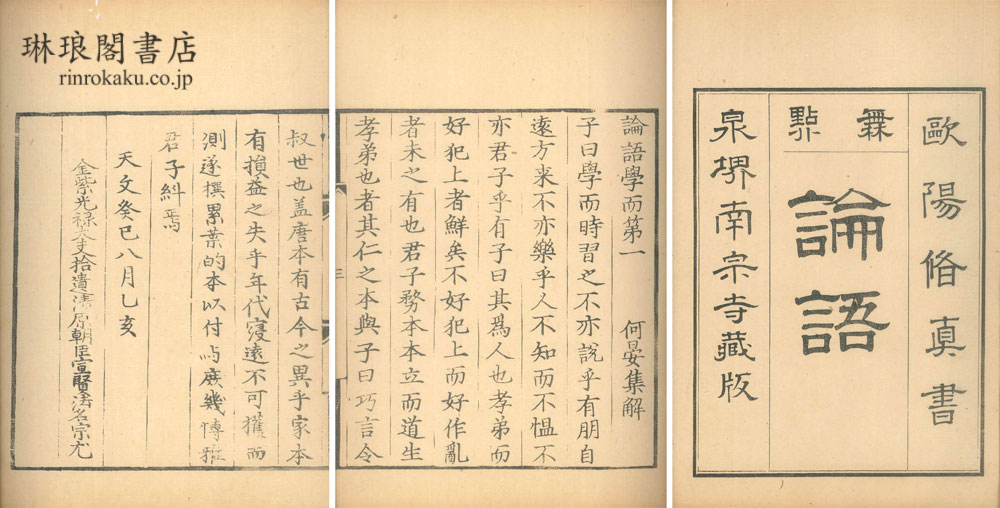 琳琅閣書店
rinrokaku.co.jp
歐陽脩真書
無點
論語
泉堺南宗寺藏版
論語學而第一 何晏集解
子曰學而時習之不亦說乎有朋自
遠方来不亦樂乎人不知而不慍不
亦君子乎有子曰其爲人也孝弟而
好犯上者鮮矣不好犯上而好作亂
者未之有也君子務本本立而道生
孝弟也者其仁之本與子曰巧言令
叔世也盖唐本有古今之異乎家本
有損益之失乎年代寖遠不可獲而
測遂撰累葉的本以付与庶幾博雅
君子糾焉
天文癸巳八月乙亥
金紫光禄大夫拾遺清原朝臣宣賢法名宗尤